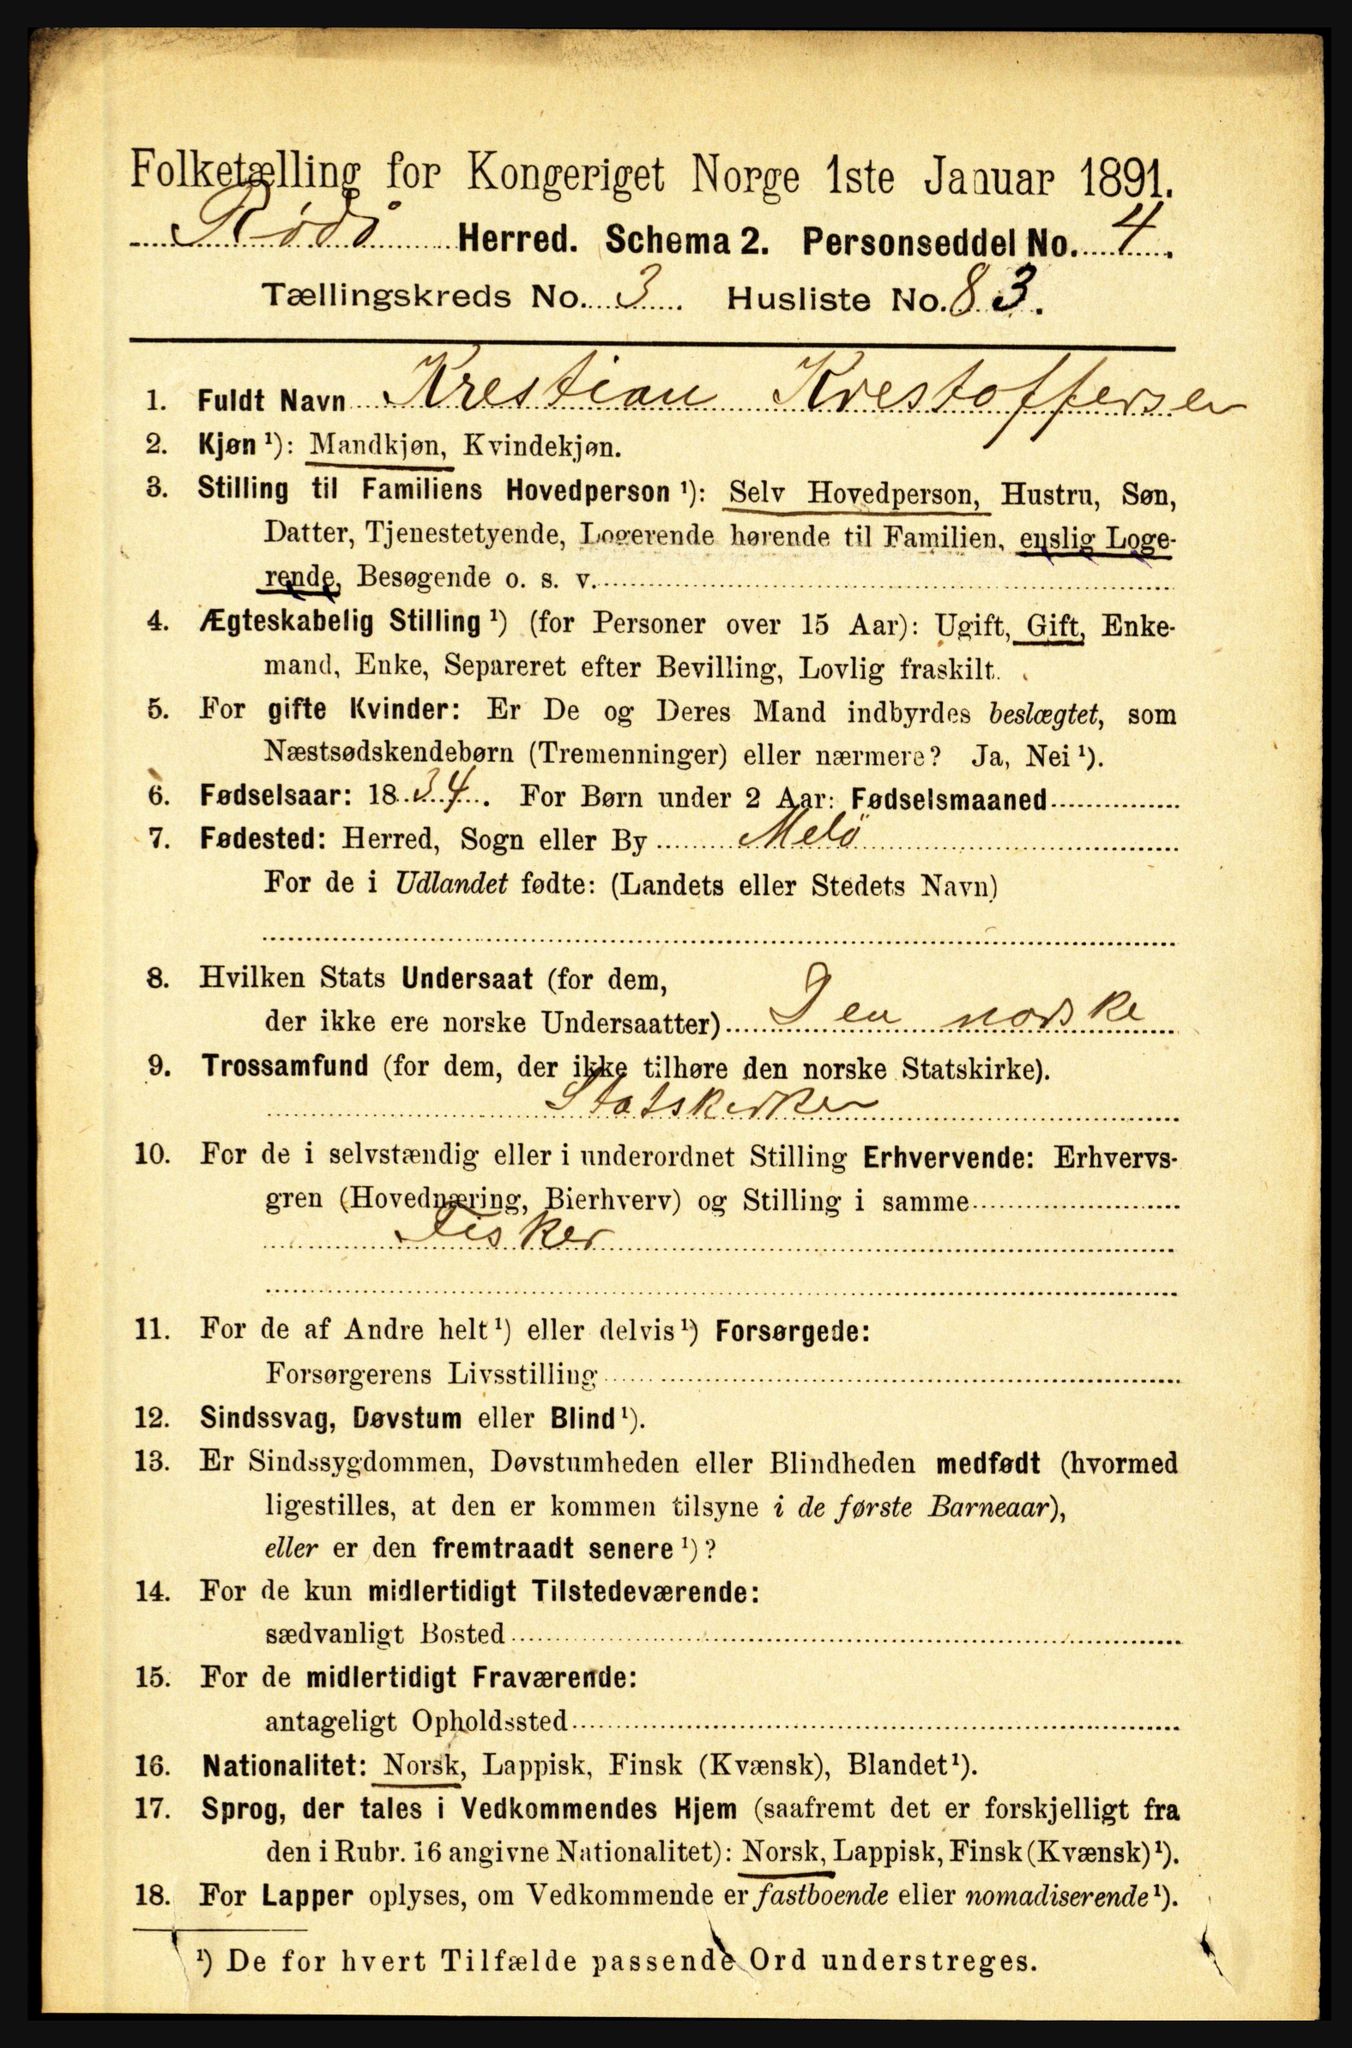 Folketælling for Kongeriget Norge 1ste Januar 1891.
Rödö Herred. Schema 2. Personseddel No. 4.
Tællingskreds No. 3. Husliste No. 83.
1. Fuldt Navn Krestian Krestoffersen
2. Kjøn ¹): Mandkjøn, Kvindekjøn.
3. Stilling til Familiens Hovedperson ¹): Selv Hovedperson, Hustru, Søn,
Datter, Tjenestetyende, Logerende hørende til Familien, enslig Loge-
rende, Besøgende o. s. v.
4. Ægteskabelig Stilling ¹) (for Personer over 15 Aar): Ugift, Gift, Enke-
mand, Enke, Separeret efter Bevilling, Lovlig fraskilt.
5. For gifte Kvinder: Er De og Deres Mand indbyrdes beslægtet, som
Næstsødskendebørn (Tremenninger) eller nærmere? Ja, Nei ¹).
6. Fødselsaar: 1834. For Børn under 2 Aar: Fødselsmaaned
7. Fødested: Herred, Sogn eller By Melö
For de i Udlandet fødte: (Landets eller Stedets Navn)
8. Hvilken Stats Undersaat (for dem,
der ikke ere norske Undersaatter) Den norske
9. Trossamfund (for dem, der ikke tilhøre den norske Statskirke).
Statskirken
10. For de i selvstændig eller i underordnet Stilling Erhvervende: Erhvervs-
gren (Hovednæring, Bierhverv) og Stilling i samme
Fisker
11. For de af Andre helt ¹) eller delvis ¹) Forsørgede:
Forsørgerens Livsstilling
12. Sindssvag, Døvstum eller Blind ¹).
13. Er Sindssygdommen, Døvstumheden eller Blindheden medfødt (hvormed
ligestilles, at den er kommen tilsyne i de første Barneaar),
eller er den fremtraadt senere ¹)?
14. For de kun midlertidigt Tilstedeværende:
sædvanligt Bosted
15. For de midlertidigt Fraværende:
antageligt Opholdssted
16. Nationalitet: Norsk, Lappisk, Finsk (Kvænsk), Blandet ¹).
17. Sprog, der tales i Vedkommendes Hjem (saafremt det er forskjelligt fra
den i Rubr. 16 angivne Nationalitet): Norsk, Lappisk, Finsk (Kvænsk) ¹).
18. For Lapper oplyses, om Vedkommende er fastboende eller nomadiserende ¹).
¹) De for hvert Tilfælde passende Ord understreges.